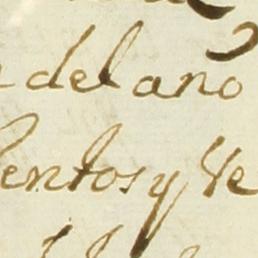 del año
entos y Ve